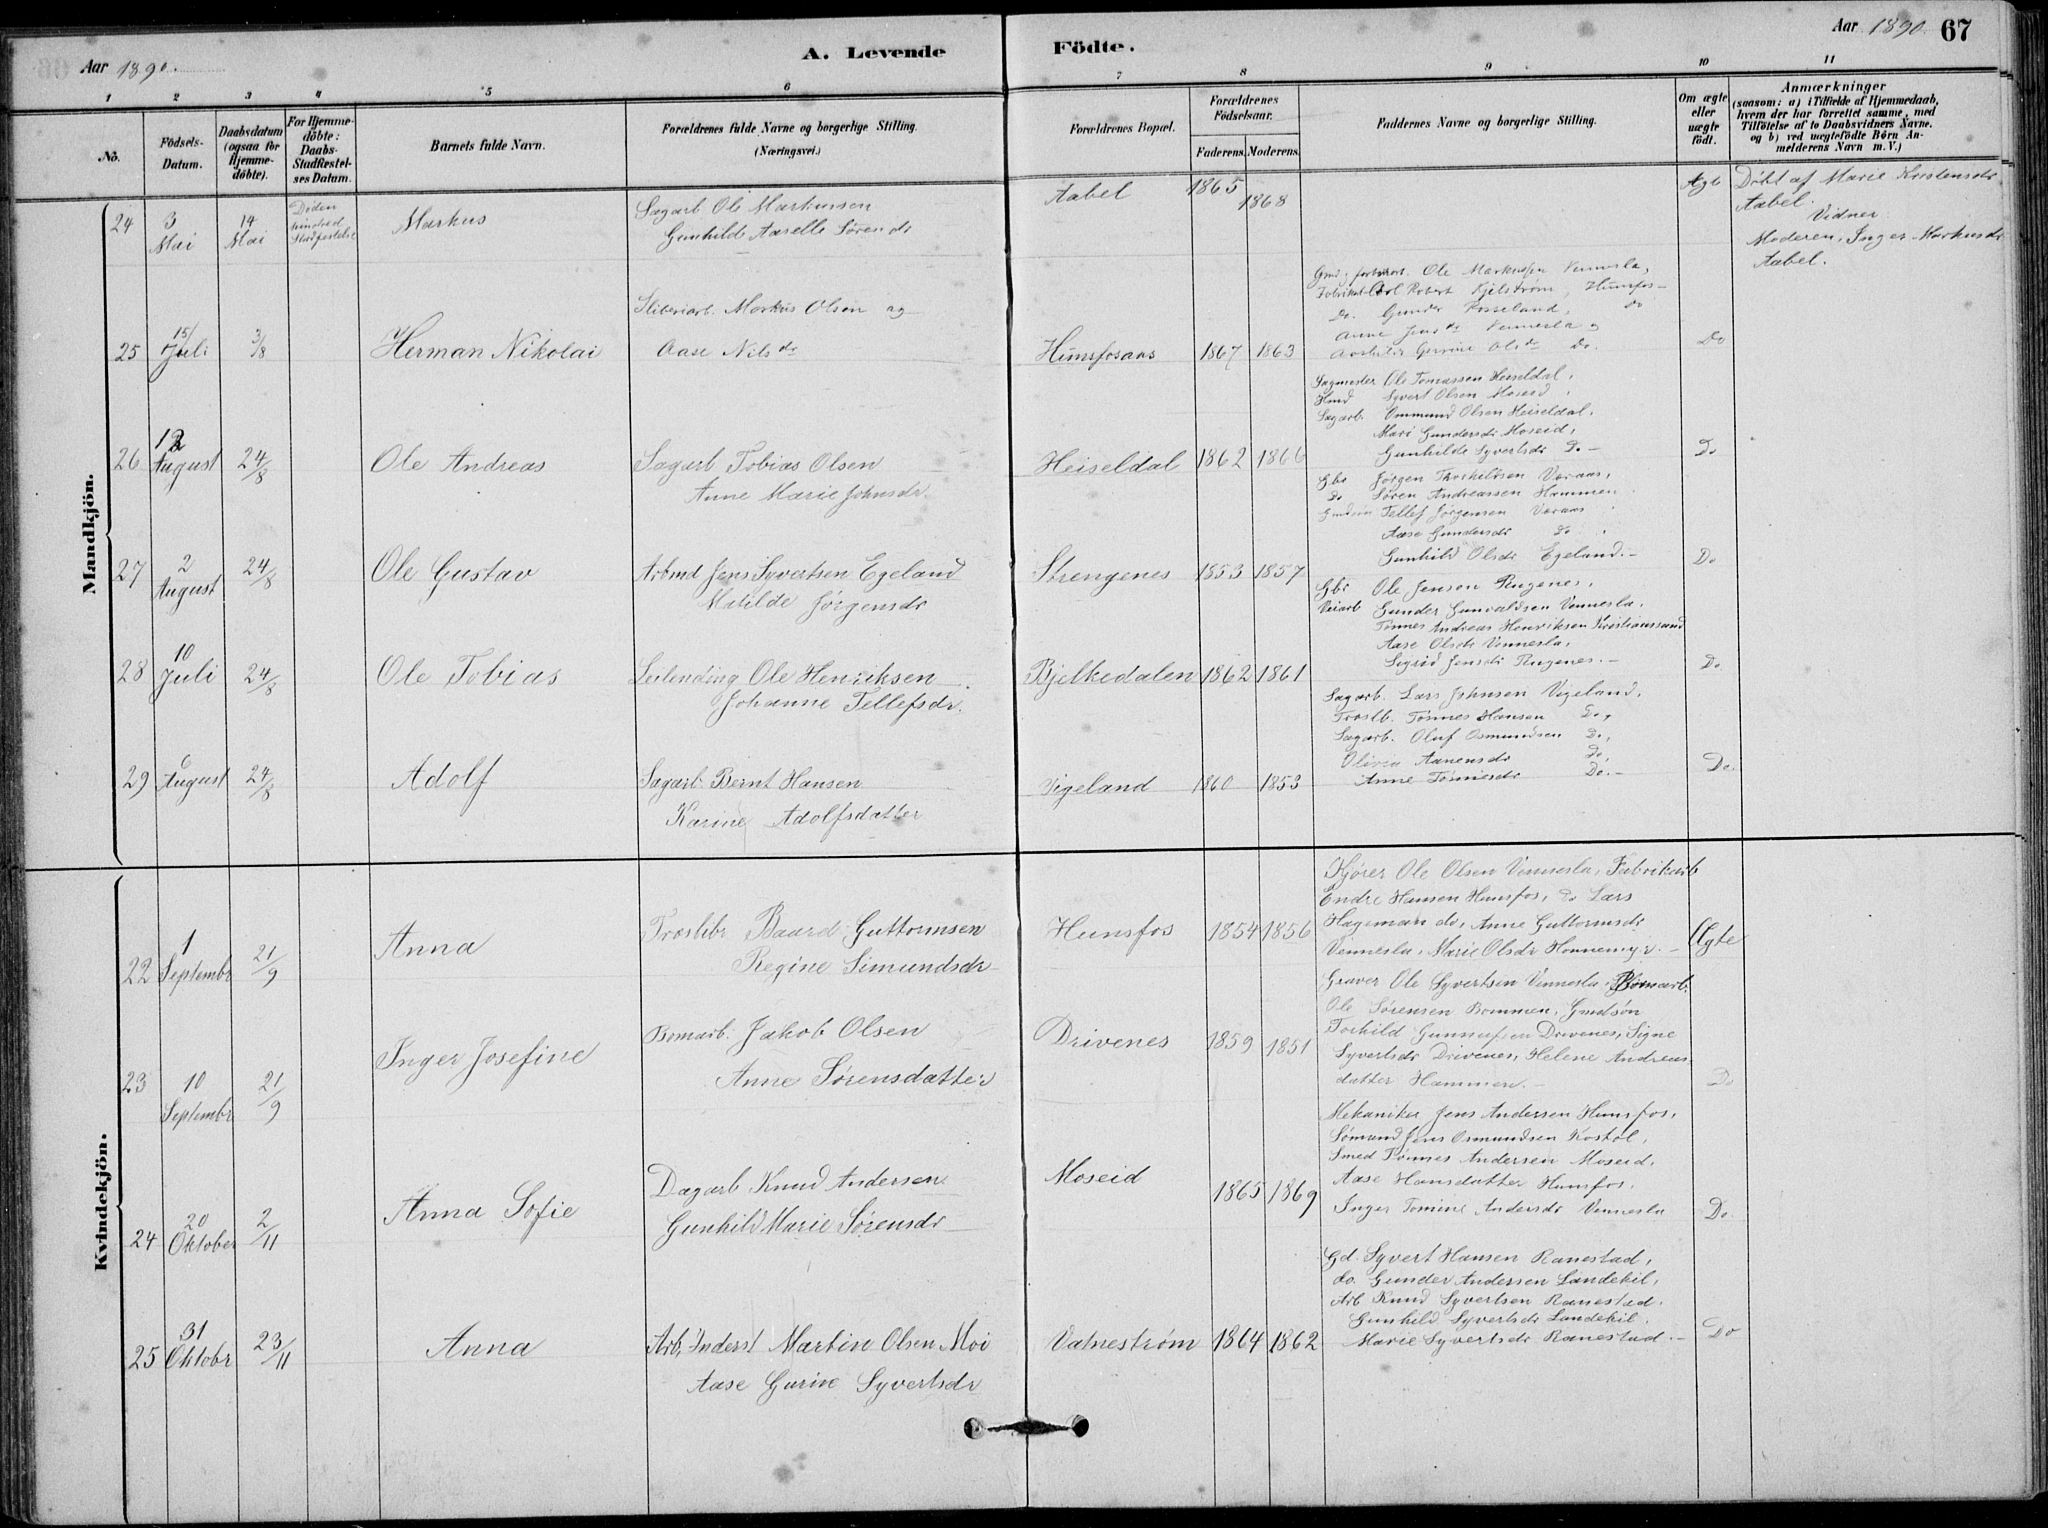 Aar 1890.
A. Levende
Födte.
Aar 1890. 67
1 2 3 4 5 6 7 8 9 10 11
No.
Födsels-
Datum.
Daabsdatum
(ogsaa for
Hjemme-
döbte).
For Hjemme-
döbte:
Daabs-
Stadfæstel-
ses Datum.
Barnets fulde Navn.
Forældrenes fulde Navne og borgerlige Stilling.
(Næringsvei.)
Forældrenes Bopæl.
Forældrenes
Födselsaar.
Faderens. Moderens.
Faddernes Navne og borgerlige Stilling.
Om ægte
eller
uægte
født.
Anmærkninger
(saasom: a) i Tilfælde af Hjemmedaab,
hvem der har forrettet samme, med
Tilföielse af to Daabsvidners Navne.
og b) ved uægtefödte Börn An-
melderens Navn m. V.)
Mandkjön.
24 3 Mai 14 Mai
Døden
Stadfæstelse
Markus
Sagarb. Ole Markussen
Gunhilde Aarelle Sørensdr
Aabel 1865 1868
Ægte
Döbt af Marie Kristensdr
Aabel.
Vidner
Moderen, Inger Markusdr
Aabel.
25 15/ Juli 3/8
Herman Nikolai
Sliberiarb. Markus Olsen og
Aase Nilsdr
Hunsfosaas 1867 1863
Ole Markussen Vennesla,
Robert Kjelstrøm, Hunsfos
Do. Gunder Rosseland, do
Anne Jensdr Vennesla og
Olsdr Do.
Do
26 12 August 24/8
Ole Andreas
Sagarb Tobias Olsen
Anne Marie Johnsdr.
Heiseldal 1862 1866
Sagmester Ole Tomassen Heiseldal,
Syvert Olsen Moseid,
Sagarb. Ommund Olsen Heiseldal,
Mari Gundersdr Moseid,
Gunhilde Syvertsdr Do. -
Do
27 2 August 24/8
Ole Gustav
Arbmd Jens Syvertsen Egeland
Matilde Jörgensdr
Strengenes 1853 1857
Gbr Jörgen Thorkildsen Væraas,
Do Søren Andreassen Hammen
Tellef Jörgensen Væraas
Aase Gundersdr Do
Gunhild Olsdr Egeland. -
Do
28 10 Juli 24/8
Ole Tobias
Leilending Ole Henriksen
Johanne Tellefsdr.
Bjelkedalen 1862 1861
Gbr Ole Jenson Rugenes,
Veiarb Gunder Gunvaldsen Vennesla,
Tønnes Andreas Henriksen Kristianssand
Aase Olsdr Vennesla,
Sigrid Jensdr Rugenes. -
Do
29 6 August 24/8
Adolf
Sagarb. Bernt Hansen
Karine Adolfsdatter
Vigeland 1860 1853
Sagarb. Lars Johnsen Vigeland,
Troslb. Tönnes Hansen Do,
Sagarb. Oluf Osmundsen Do,
Olivia Aanensdr Do,
Anne Tönnesdr Do. -
Do.
Kvindekjön.
22 1 Septembr 21/9
Anna
Baard Guttormsen
Regine Simundsdr
Hunsfos 1854 1856
Kjører Ole Olsen Vennesla, Fabrikarb
Endre Hansen Hunsfos, do Lars
Hageman do, Anne Guttormsdr
Vennesla, Marie Olsdr Honnemyr. -
Ægte
23 10 Septembr 21/9
Inger Josefine
Bomarb. Jakob Olsen
Anne Sörensdatter
Drivenes 1859 1851
Graver Ole Syvertsen Vennesla, Bomarb.
Ole Sørensen Bommen, Gmdsön
Torkild Gunnufsen Drivenes, Signe
Syvertsdr Drivenes, Helene Andreas
datter Hammen. -
Do
24 20 Oktober 2/11
Anna Sofie
Dagarb Knud Andersen
Gunhild Marie Sörensdr
Moseid 1865 1869
Mekaniker Jens Andersen Hunsfos,
Sømand Jens Osmundsen Kostøl,
Smed Tönnes Andersen Moseid,
Aase Hansdatter Hunsfos,
Inger Tomine Andersdr Vennesla
Do.
25 31 Oktobr 23/11
Anna
Arb, Inderst Martin Olsen Moi
Aase Gurine Syvertsdr
Vatneström 1864 1862
Gd. Syvert Hansen Ranestad,
do. Gunder Andersen Landekil,
Arb Knud Syvertsen Ranestad.
Gunhild Syvertsdr Landekil.
Marie Syvertsdr Ranestad. -
Do